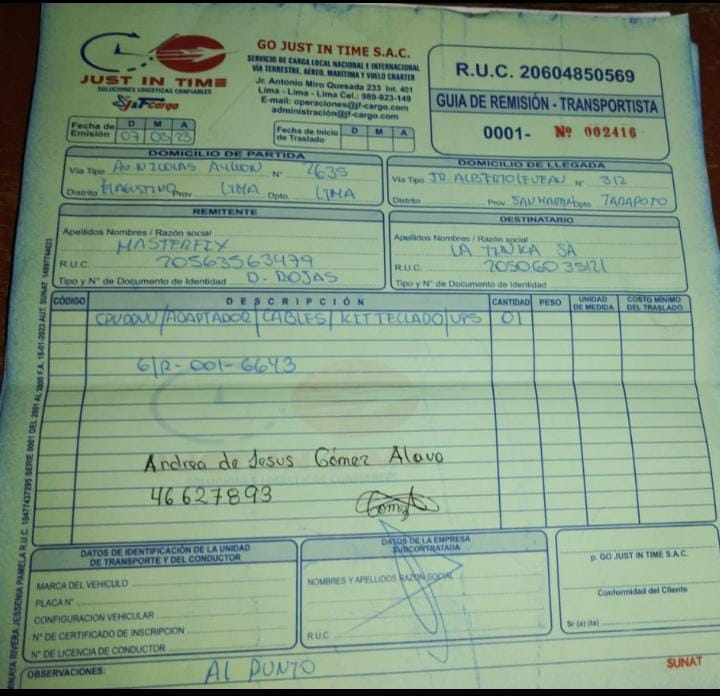 JUST IN TIME
SOLUCIONES LOGÍSTICAS CONFIABLES
J&F Cargo
GO JUST IN TIME S.A.C.
SERVICIO DE CARGA LOCAL NACIONAL E INTERNACIONAL
VÍA TERRESTRE, AÉREO, MARÍTIMA Y VUELO CHARTER
Jr. Antonio Miro Quesada 233 Int. 401
Lima - Lima - Lima Cel.: 989-923-149
E-mail: operaciones@jf-cargo.com
administración@jf-cargo.com
R.U.C. 20604850569
GUIA DE REMISIÓN - TRANSPORTISTA
0001- Nº 002416
Fecha de Emisión D M A
07 03 23
Fecha de Inicio de Traslado D M A
DOMICILIO DE PARTIDA
Vía Tipo AV. NICOLAS AYLLON N° 2635
Distrito El AGUSTINO Prov LIMA Dpto. LIMA
DOMICILIO DE LLEGADA
Vía Tipo JR. ALBERTO N° 312
Distrito Prov SAN MARTIN Dpto. TARAPOTO
REMITENTE
Apellidos Nombres / Razón social
MASTERFIX
R.U.C. 20563563479
Tipo y N° de Documento de Identidad D. ROJAS
DESTINATARIO
Apellidos Nombres / Razón social
LA TINKA SA
R.U.C. 20506035121
Tipo y N° de Documento de Identidad
CÓDIGO DESCRIPCIÓN CANTIDAD PESO UNIDAD DE MEDIDA COSTO MÍNIMO DEL TRASLADO
/ADAPTADOR/CABLES/KIT TECLADO/UPS 01
G/R-001-6643
Andrea de Jesus Gómez Alava
46627893
Gomez
DATOS DE IDENTIFICACIÓN DE LA UNIDAD DE TRANSPORTE Y DEL CONDUCTOR
MARCA DEL VEHICULO
PLACA N°
CONFIGURACION VEHICULAR
N° DE CERTIFICADO DE INSCRIPCION
N° DE LICENCIA DE CONDUCTOR
DATOS DE LA EMPRESA SUBCONTRATADA
NOMBRES Y APELLIDOS RAZÓN SOCIAL
R.U.C
p. GO JUST IN TIME S.A.C.
Conformidad del Cliente
Sr (a) (ta)
OBSERVACIONES: AL PUNTO
SUNAT
RIVERA JESSENIA PAMELA R.U.C. 10477437295 SERIE 0001 DEL 2001 AL 3000 F.A. 16-01-2023 AUT. SUNAT